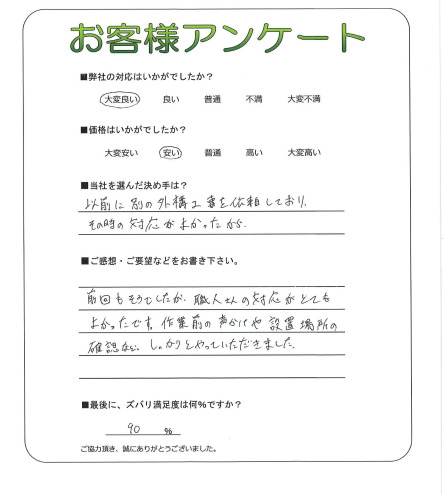 お客様アンケート
■弊社の対応はいかがでしたか?
大変良い 良い 普通 不満 大変不満
■価格はいかがでしたか?
大変安い 安い 普通 高い 大変高い
■当社を選んだ決め手は?
以前に別の外構工事を依頼しており、
その時の対応がよかったから。
■ご感想・ご要望などをお書き下さい。
前回もそうでしたが、職人さんの対応がとても
よかったです。作業前の声かけや設置場所の
確認など、しっかりとやっていただきました。
■最後に、ズバリ満足度は何%ですか?
90 %
ご協力頂き、誠にありがとうございました。